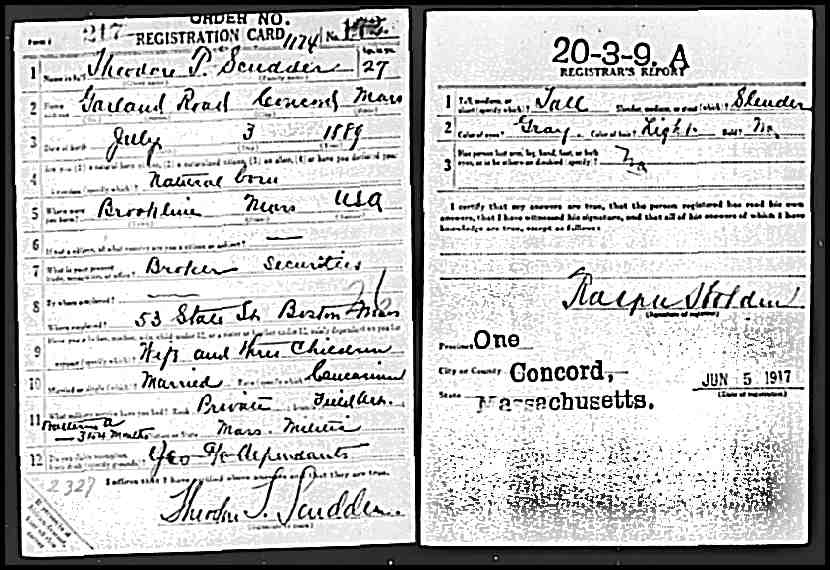 ORDER NO.
Form 1 217 REGISTRATION CARD 1174 No. 172
1 Name in full Theodore T. Scudder Age, in yrs. 27
2 Home address Garland Road Concord Mass
3 Date of birth July 3 1889
Are you (1) a natural born citizen, (2) a naturalized citizen, (3) an alien, (4) or have you declared your
4 intention (specify which)? Natural born
5 Where were you born? Brookline Mass USA
6 If not a citizen, of what country are you a citizen or subject? —
7 What is your present trade, occupation, or office? Broker Securities
8 By whom employed? —
Where employed? 53 State St Boston Mass
Have you a father, mother, wife, child under 12, or a sister or brother under 12, solely dependent on you for
9 support (specify which)? Wife and three Children
10 Married or single (which)? Married Race (specify which)? Caucasian
11 What military service have you had? Rank Private branch Field Art.
Battery A
3 1/2 Months Nation or State Mass. Militia
12 Do you claim exemption from draft (specify grounds)? Yes a/c Dependants
I affirm that I have verified above answers and that they are true.
2327
Theodore T. Scudder
20-3-9. A
REGISTRAR'S REPORT
1 Tall, medium, or short (specify which)? Tall Slender, medium, or stout (which)? Slender
2 Color of eyes? Gray Color of hair? Light Bald? No
3 Has person lost arm, leg, hand, foot, or both eyes, or is he otherwise disabled (specify)? No
I certify that my answers are true, that the person registered has read his own
answers, that I have witnessed his signature, and that all of his answers of which I have
knowledge are true, except as follows:
Ralph
(Signature of registrar)
Precinct One
City or County Concord,
State Massachusetts.
JUN 5 1917
(Date of registration)